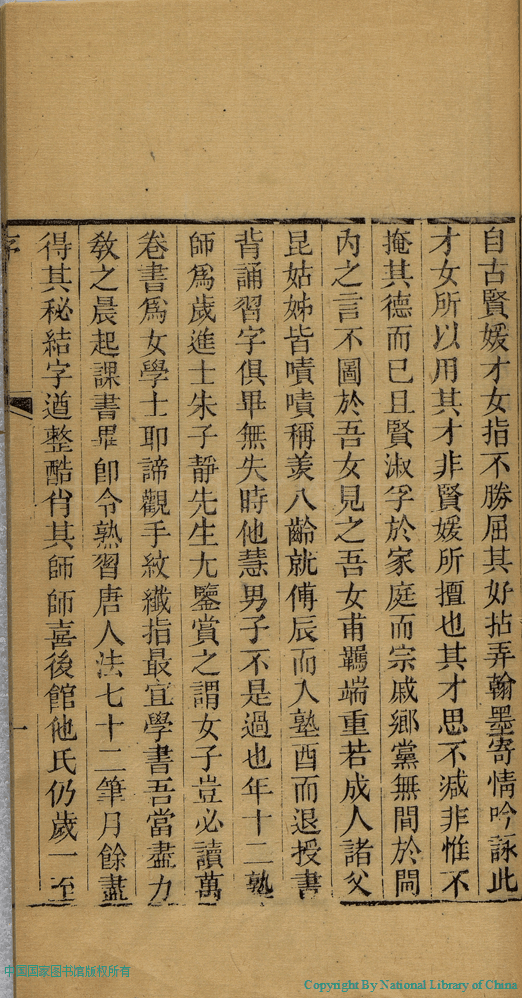 自古賢媛才女指不勝屈其好拈弄翰墨寄情吟詠此
才女所以用其才非賢媛所擅也其才思不减非惟不
掩其德而已且賢淑孚於家庭而宗戚鄉黨無間於閫
內之言不圖於吾女見之吾女甫羈端重若成人諸父
昆姑姊皆嘖嘖稱羨八齡就傅辰而入塾酉而退授書
背誦習字俱畢無失時他慧男子不是過也年十二塾
師爲歲進士朱子靜先生尤鑒賞之謂女子豈必讀萬
卷書爲女學士耶諦觀手紋纖指最宜學書吾當盡力
敎之晨起課書畢卽令熟習唐人法七十二筆月餘盡
得其秘結字遒整酷肖其師師喜後館他氏仍歲一至
序
一
中国国家图书馆版权所有
Copyright By National Library of China